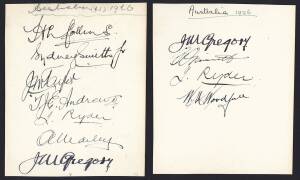 Australia 1926
H L Collins
Sydney Smith Jr
J M Taylor
T. J. E. Andrews
J. Ryder
A A Mailey
J M Gregory
Australia 1926
J M Gregory
J. Ryder
W M Woodfull